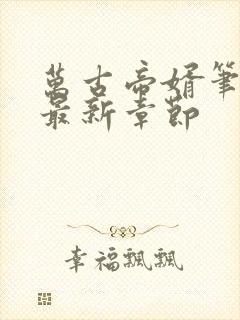 萬古帝婿筆
最新章節
幸福飄飄